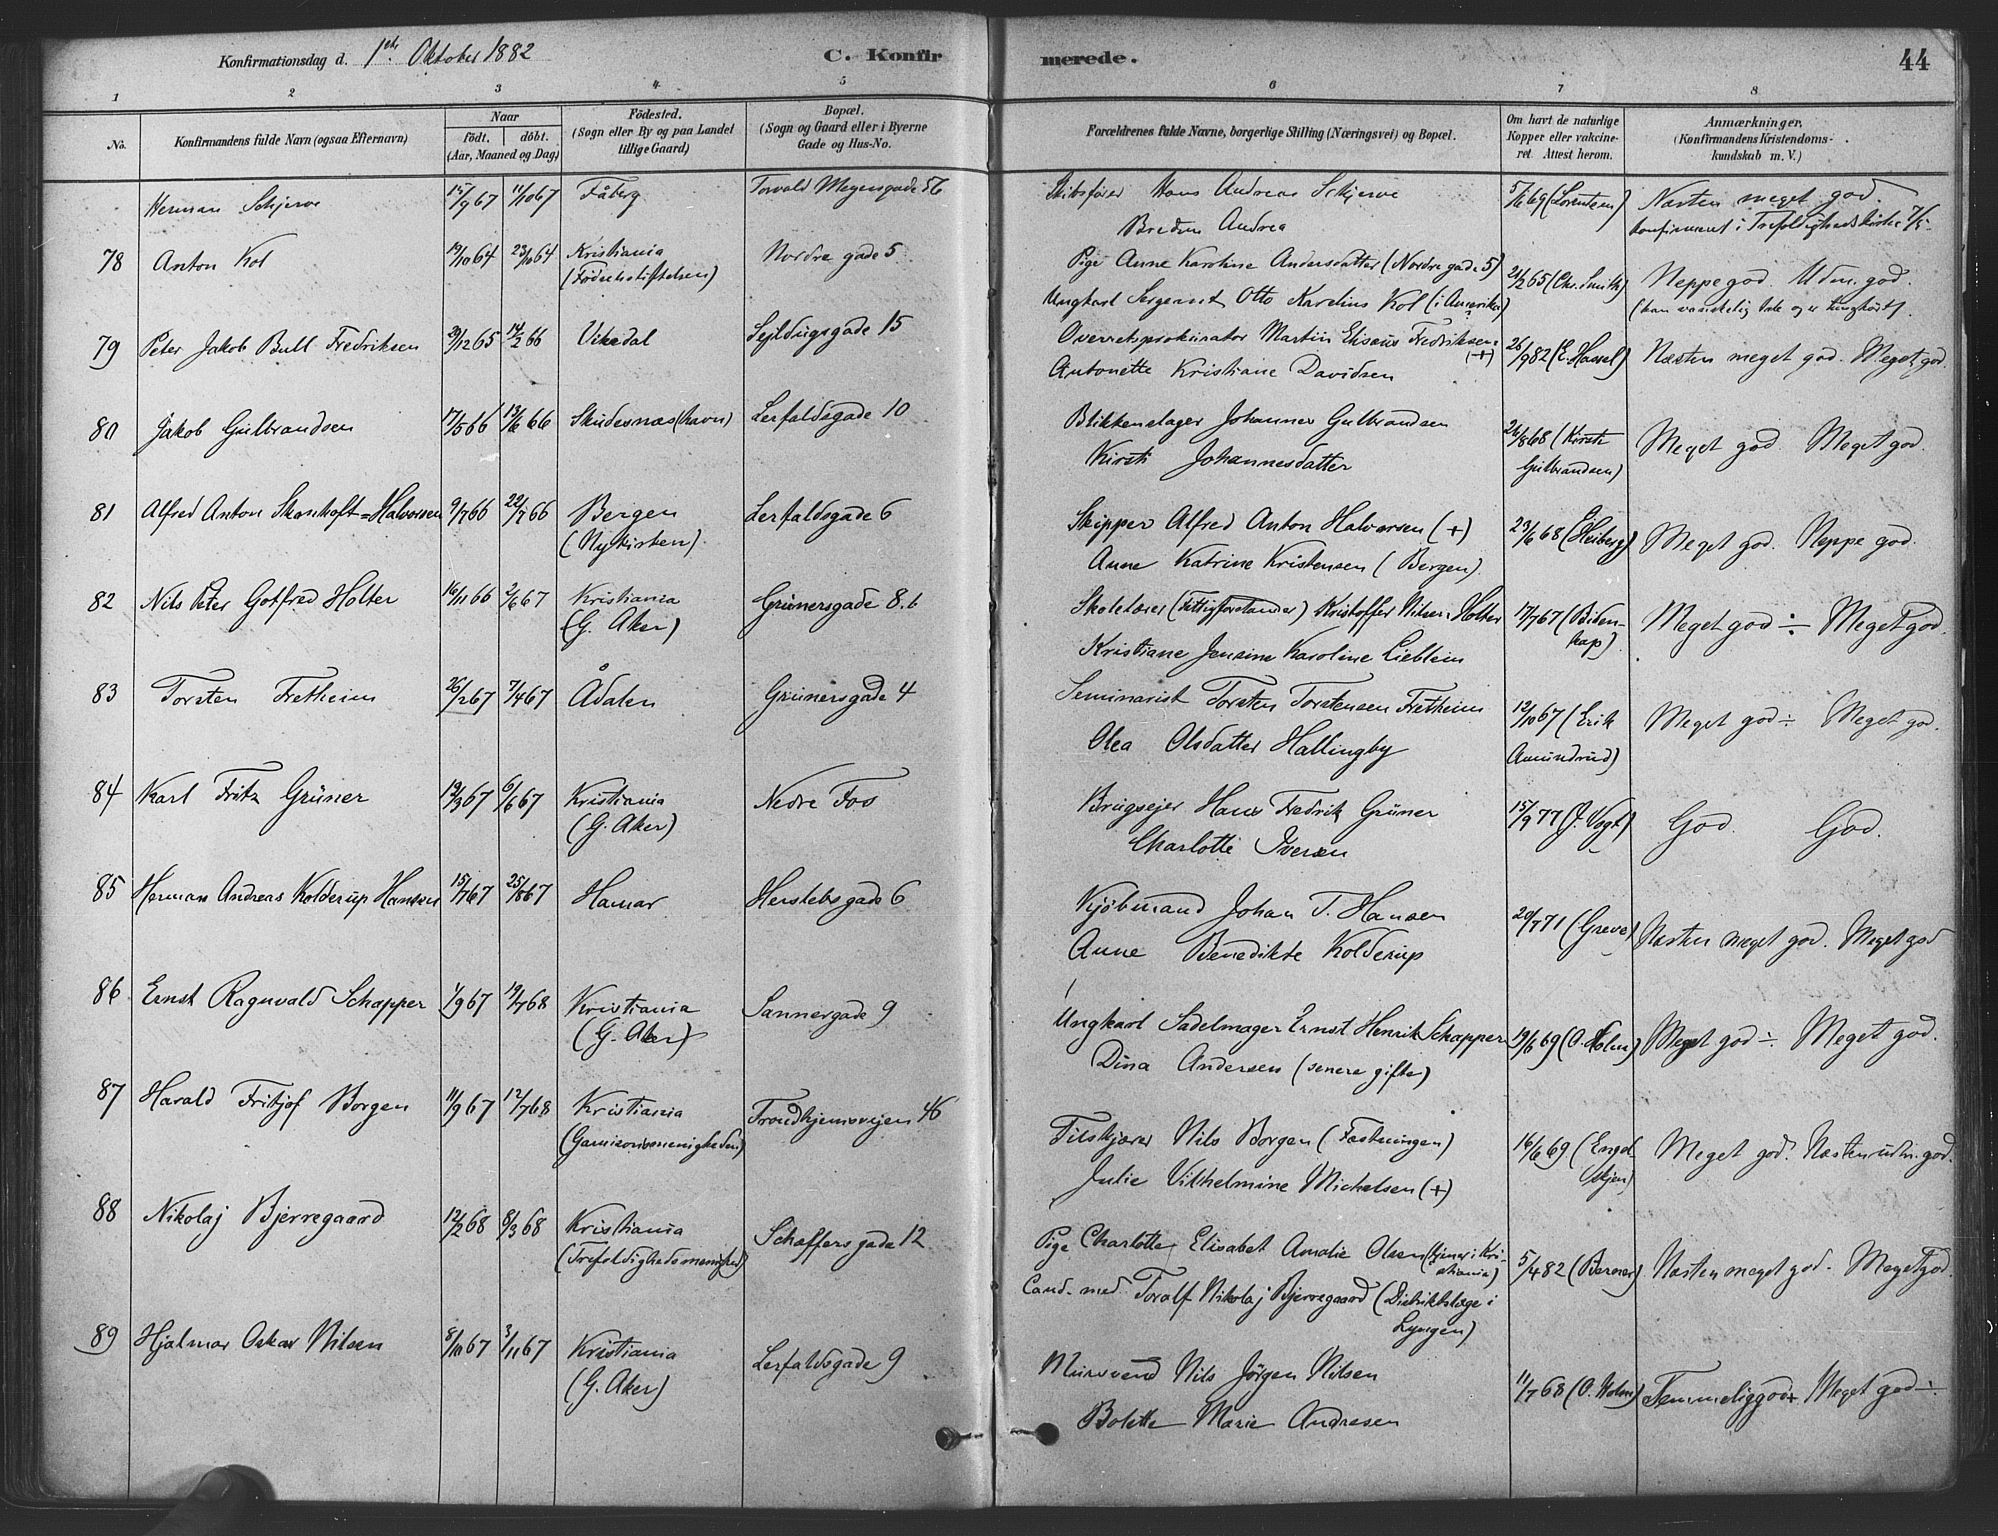 Konfirmationsdag d. 1ste Oktober 1882 C. Konfirmerede. 44
1 2 3 4 5 6 7 8
No. Konfirmandens fulde Navn (ogsaa Efternavn) Naar födt. döbt. (Aar, Maaned og Dag) Födested. (Sogn eller By og paa Landet tillige Gaard) Bopæl. (Sogn og Gaard eller i Byerne Gade og Hus-No. Forældrenes fulde Navne, borgerlige Stilling (Næringsvei) og Bopæl. Om havt de naturlige Kopper eller vakcineret. Attest herom. Anmærkninger, (Konfirmandens Kristendomskundskab m. V.)
Herman Schjerve 15/9 67 11/10 67 Fåberg Torvald Meyersgade 56 Skibsfører Hans Andreas Schjerve 5/6 69 (Lorentzen) Næsten meget god.
Bredine Andrea konfirmeret i Trefoldighedskirke
78 Anton Kol 19/10 64 23/10 64 Kristiania Nordre gade 5 Pige Anne Karoline Andersdatter (Nordre gade 5) 21/2 65 (Chr. Smith) Neppe god. Udm. god.
(Födselsstiftelsen) Ungkarl Sergeant Otto Karelius Kol (i Amerika) (han vanskelig Tale og er tunghört).
79 Peter Jakob Bull Fredriksen 29/12 65 14/2 66 Vikedal Sejldugsgade 15 Overretsprokurator Martin Elisæus Fredriksen (+) 26/9 82 (E. Hassel) Næsten meget god. Meget god
Antonette Kristiane Davidsen
80 Jakob Gulbrandsen 17/5 66 13/6 66 Skudesnæs (havn) Lerfaldsgade 10 Blikkenslager Johannes Gulbrandsen 26/8 68 (Kirsti Meget god. Meget god.
Kirsti Johannesdatter Gulbrandsen)
81 Alfred Anton Skonhoft=Halvorsen 9/7 66 22/7 66 Bergen Lerfaldsgade 6 Skipper Alfred Anton Halvorsen (+) 23/6 68 (Heiberg) Meget god. Neppe god.
(Nykirken) Anne Katrine Kristensen (Bergen)
82 Nils Peter Gotfred Holter 16/11 66 2/6 67 Kristiania Grünersgade 8.b Skolelærer (Fattigforstander) Kristoffer Nilsen Holter 17/7 67 (Bidenkap) Meget god ÷ Meget god.
(G. Aker) Kristiane Jensine Karoline Lieblein
83 Torsten Fretheim 26/2 67 7/4 67 Ådalen Grünersgade 4 Seminarist Torsten Torstensen Fretheim 12/10 67 (Erik Meget god ÷ Meget god.
Olea Olsdatter Hallingby Amundrud)
84 Karl Fritz Grüner 12/3 67 6/6 67 Kristiania Nedre Fos Brugsejer Hans Fredrik Grüner 15/9 77 (J. Vogt) God. God.
(G. Aker) Charlotte Iversen
85 Herman Andreas Kolderup Hansen 15/7 67 25/8 67 Hamar Herslebsgade 6 Kjöbmand Johan T. Hansen 20/7 71 (Greve) Næsten meget god. Meget god
Anne Benedikte Kolderup
86 Ernst Ragnvald Schapper 1/9 67 19/7 68 Kristiania Sannergade 9 Ungkarl Sadelmager Ernst Henrik Schapper 19/6 69 (O. Holm) Meget god ÷. Meget god.
(G. Aker) Dina Andersen (senere gifte)
87 Harald Fritjof Borgen 11/9 67 12/7 68 Kristiania Trondhjemsvejen 46 Filskjærer Nils Borgen (Fæstningen) 16/6 69 (Engelskjen) Meget god. Næsten udm. god.
(Garnisonsmenigheden) Julie Vilhelmine Michelsen (+)
88 Nikolaj Bjerregaard 12/2 68 8/3 68 Kristiania Schaffersgade 12 Pige Charlotte Elisabet Amalie Olsen (tjener i Kristiania) 5/4 82 (Berner) Næsten meget god. Meget god.
(Trefoldighedsmenighed) Cand. med Toralf Nikolaj Bjerregaard (Distriktslæge i Lyngen)
89 Hjalmar Oskar Nilsen 8/10 67 3/11 67 Kristiania Lerfaldsgade 9 Mursvend Nils Jörgen Nilsen 11/7 68 (O. Holm) Temmelig god + Meget god ÷.
(G. Aker) Bolette Marie Andresen